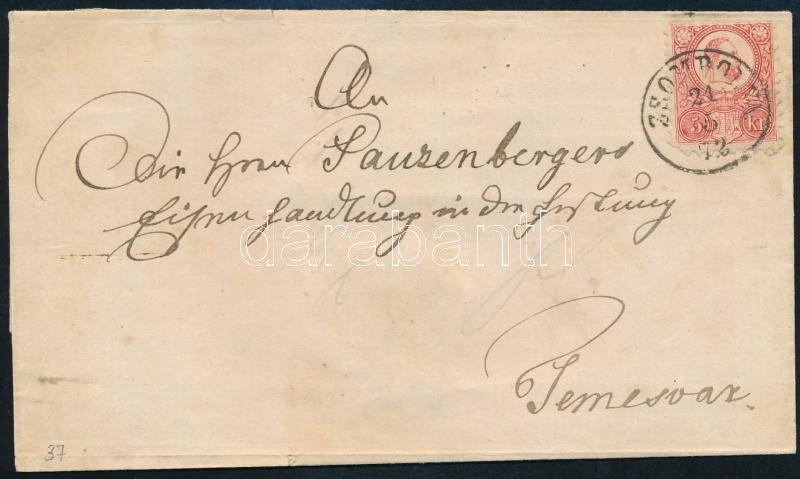 An
Die Herren Pauzenbergers
Eisenhandlung in der Festung
Temesvar.
ZSOMBOLYA
21
5
72
5 Kr
darabanth
37